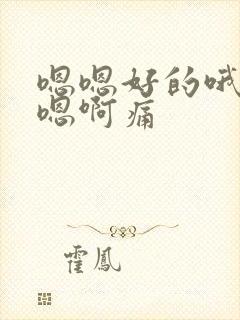 嗯嗯好的哦
嗯啊痛
霍鳳